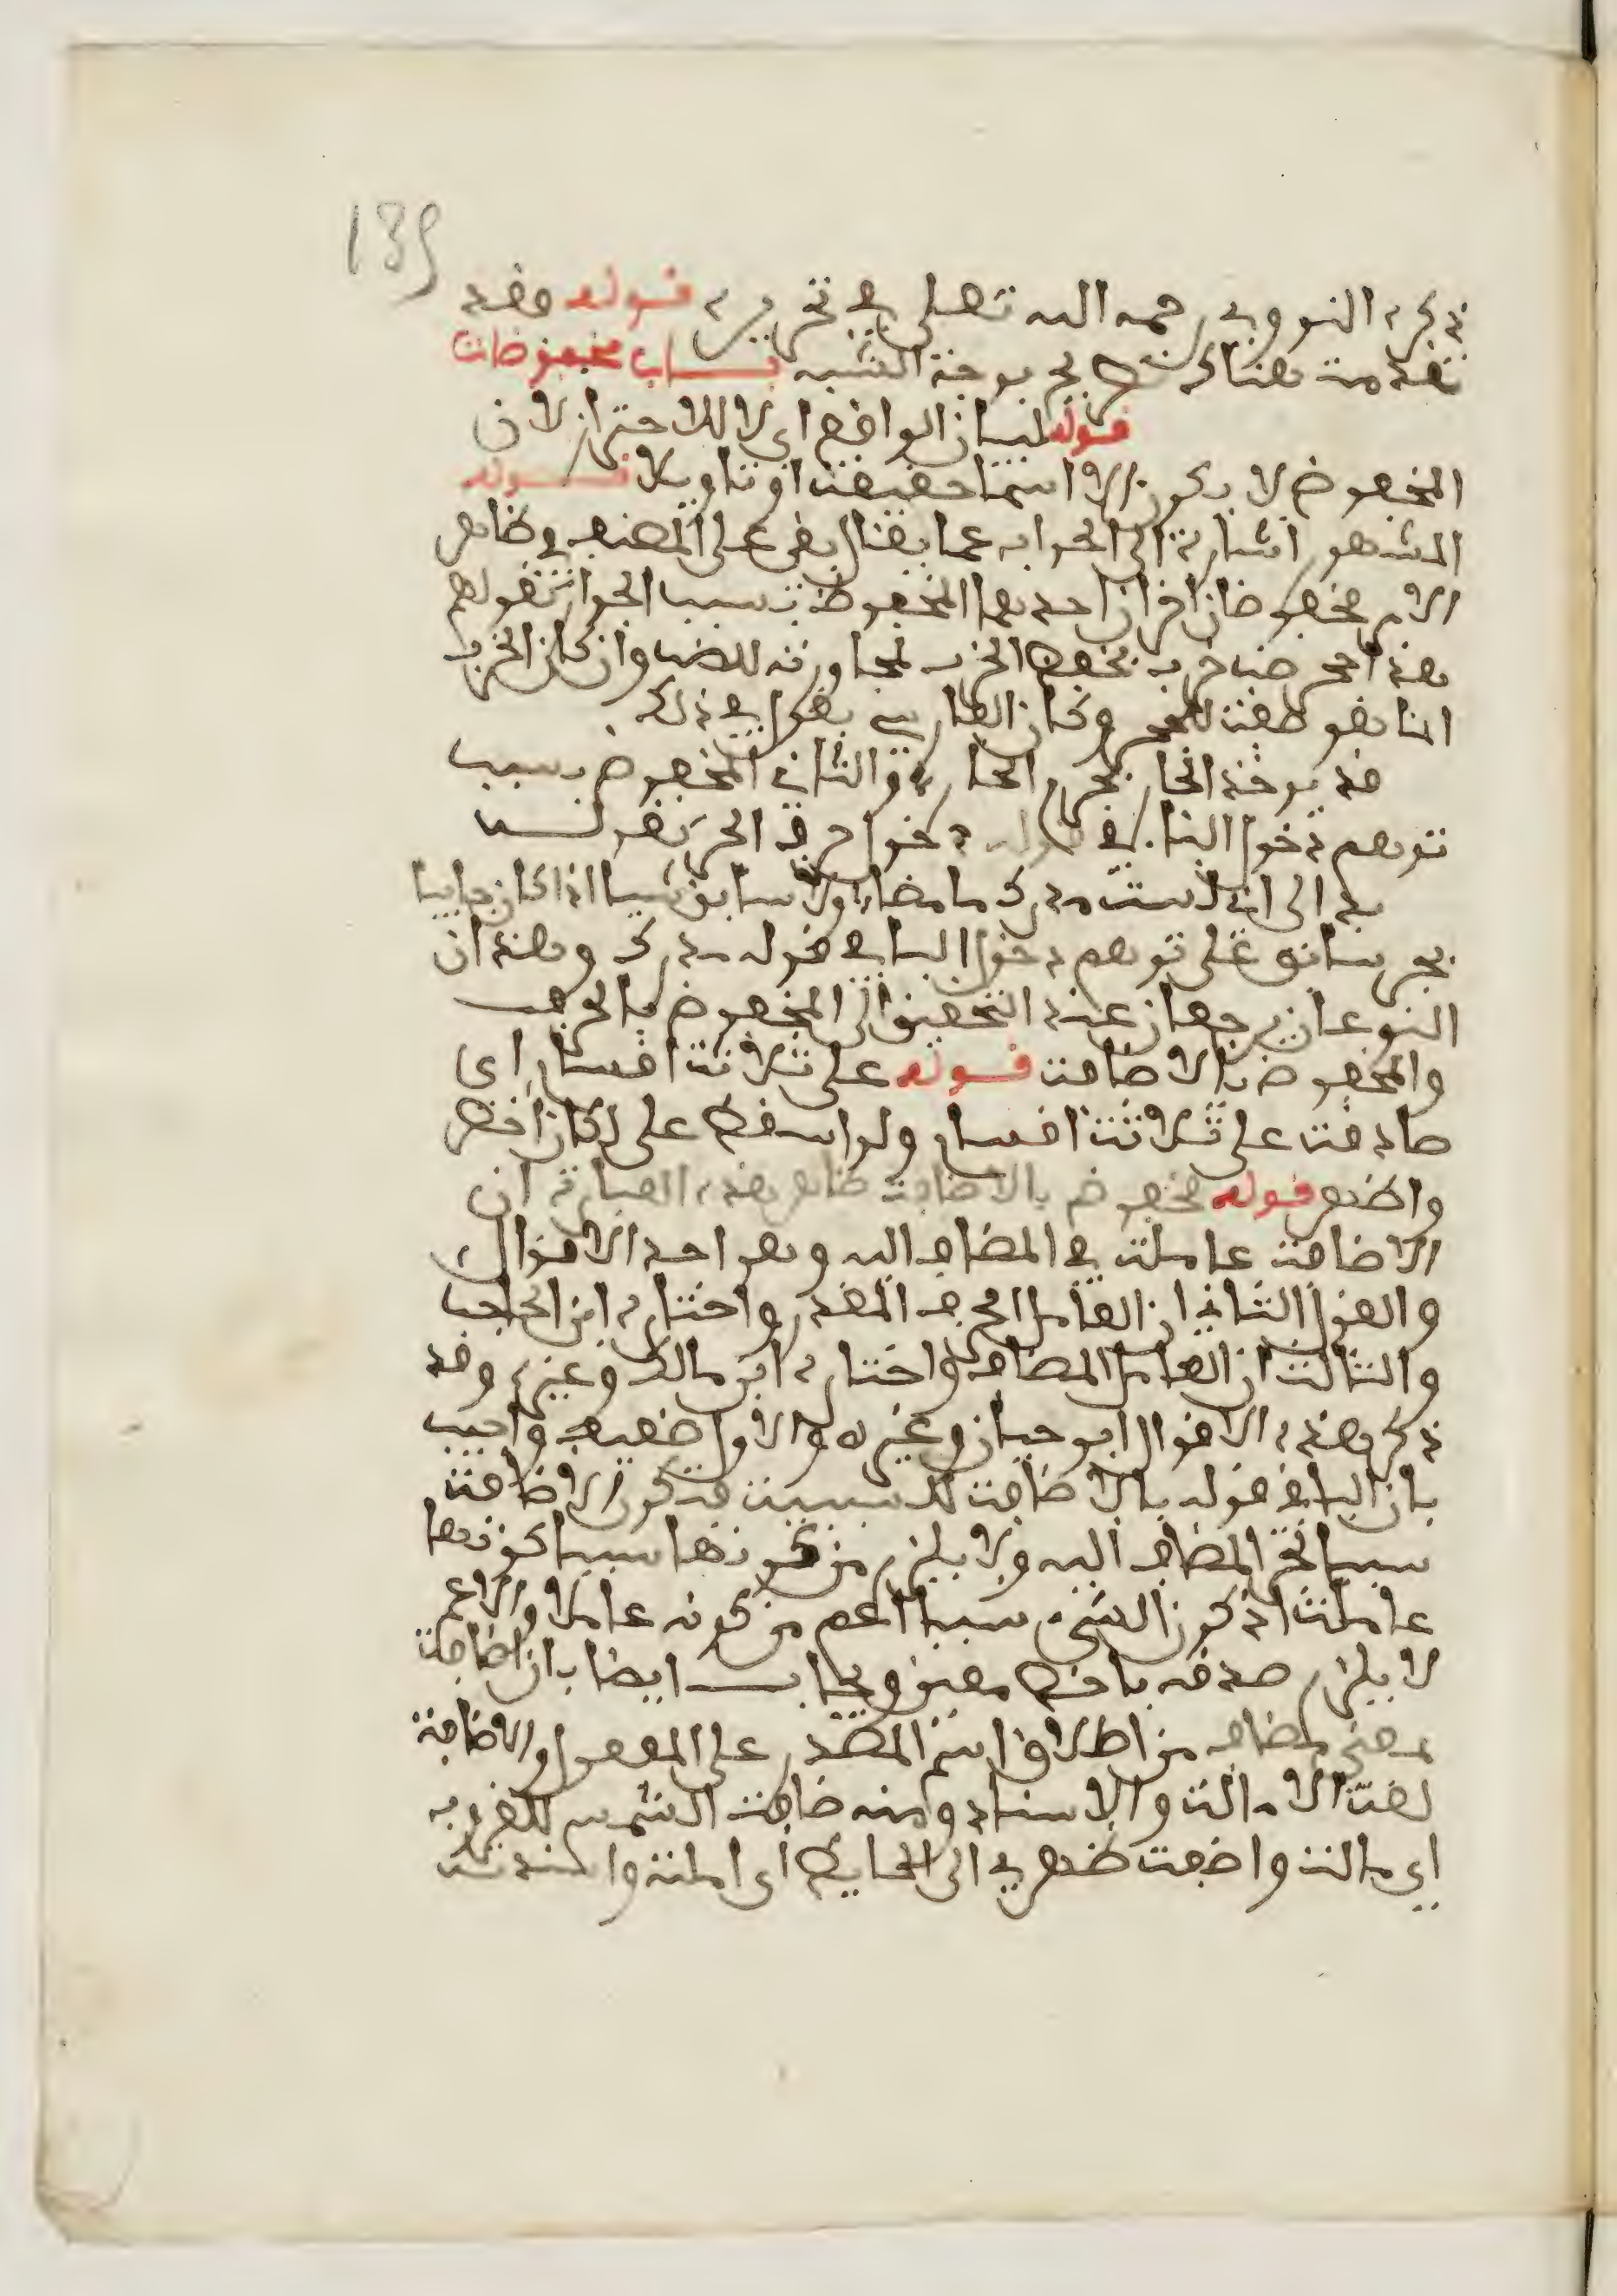 139
ذكره النووي رحمه الله تعلى في تحريره قوله وقد
تقدمت هناك بوجه الشبه باب مخفوضات
قوله لبيان الواقع اى لا للاحتراز لان
المخفوض لا يكون الا اسما حقيقة او تاويلا قوله
المشهور اشارة الى الجواب عما يقال بقى على المصنف وظاهر
مخفوضان اخران احدهما المخفوظ بسبب الجوار كقولهم
هذا جحر ضب خرب بخفض الخرب لمجاورته للضب وان كان الخرب
انما هو صفة للجحر وكان
قد يوخذ الجار بجرم الجار والثانى المخفوض بسبب
توهم دخول البا في نحو احرف الجر كقوله
بدا لى انى لست مدرك ما مضا ولا سابق شيا اذا كان جايبا
بجر سابق على توهم دخول البا في قوله مدرك وهذان
النوعان يرجعان عند التحقيق الى المخفوض بالحرف
والمخفوض بالاضافة قوله على ثلاثة اقسام اى
صادقة على ثلاثة اقسام ولو اسقط على لكان اخصر
واظهر قوله مخفوض بالاضافة ظاهر هذه العبارة ان
الاضافة عاملة في المضاف اليه وهو احد الاقوال
والقول الثاني ان العامل الحرف المقدر واختاره ابن الحاجب
والثالث ان العامل المضاف واختاره ابن مالك وغيره وقد
ذكر هذه الاقوال ابو حيان وغيره والاول ضعيف واجيب
بان البا في قوله بالاضافة للسببية فتكون الاضافة
سببا لجر المضاف اليه ولا يلزم من كونها سببا كونها
عاملة اذ كون الشيء سببا اعم من كونه عاملا والاعم
لا يلزم صدقه باخص معين ويجاب ايضا بان اضافة
بمعنى مضاف من اطلاق اسم المصدر على المفعول والاضافة
لغة الامالة والاسناد ومنه ضافت الشمس للغروب
اي مالت واضفت ظهري الى الحايط اى املته واسندته